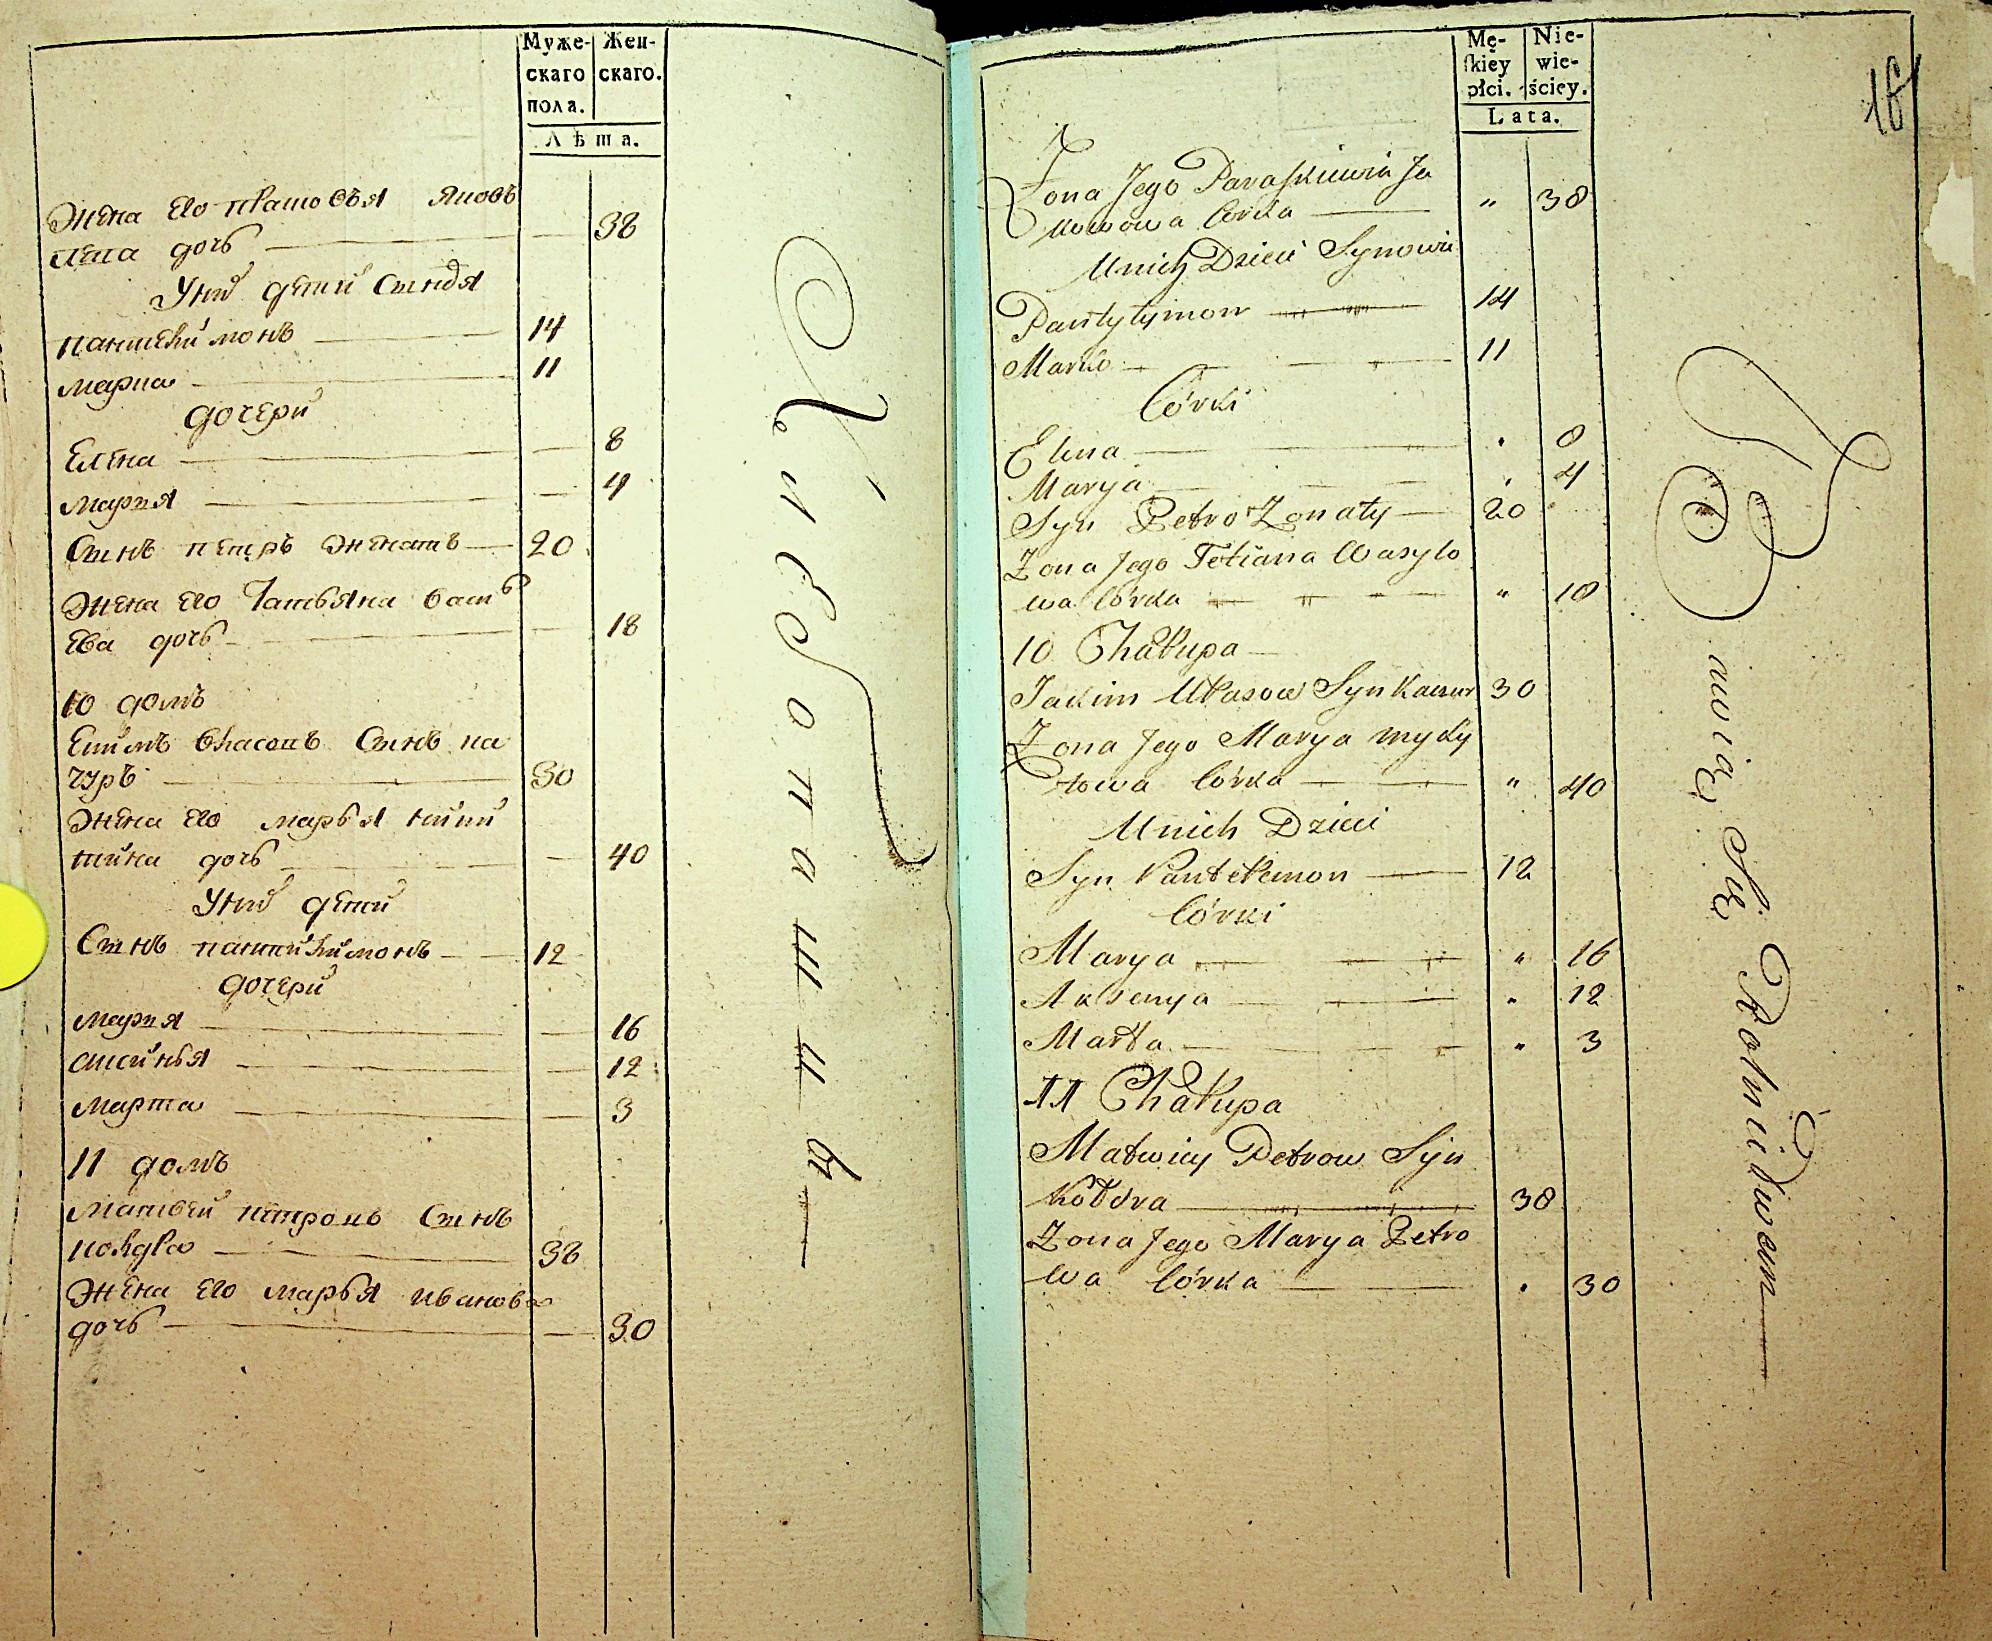 Муже-
скаго
пола.
Жен-
скаго.
Лѣта.
Жена его Яковъ
лева дочь 38
У них дети Сынов'я
Пантелимонъ 14
Марко 11
дочери
Елена 8
Мария 4
Сынъ петръ женатъ 20
Жена его Татьяна
ева дочь 18
10 домъ
Екимъ власовъ Сынъ ка
чуръ 30
Жена его марья ники
тина дочь 40
У них дети
Сынъ пантилимонъ 12
дочери
Мария 16
аксинья 12
Марта 3
11 домъ
Матвей петровъ Сынъ
колдра 38
Жена его марья иванова
дочь 30
Хлебопашцы
Mę-
skiey
płci.
Nie-
wie-
ściey.
Lata.
16
Żona Jego Paraskiewia Ja
kowowa Córka " 38
U nich Dzieci Synowie
Pantylymon 14
Marko 11
Córki
Elena 8
Marya 4
Syn Petro Żonaty 20
Żona Jego Tetiana Wasylo
wa Córka " 18
10 Chałupa
Jakim Ułasow Syn Kaczur 30
Żona Jego Marya Myky
towa Córka " 40
U nich Dzieci
Syn Pantełemon 12
Córki
Marya " 16
Aksenya " 12
Marta " 3
11 Chałupa
Matwiey Petrow Syn
Kołdra 38
Żona Jego Marya Petro
wa Córka 30
Bawią Się Rolnictwem